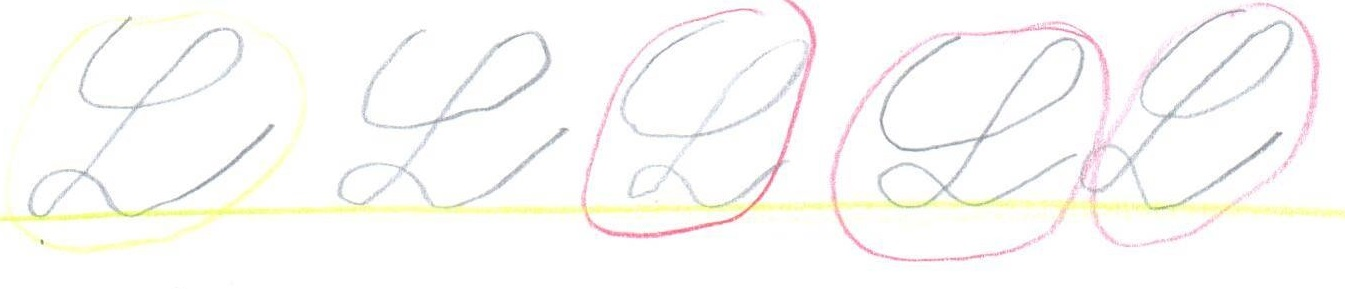 L L L L L